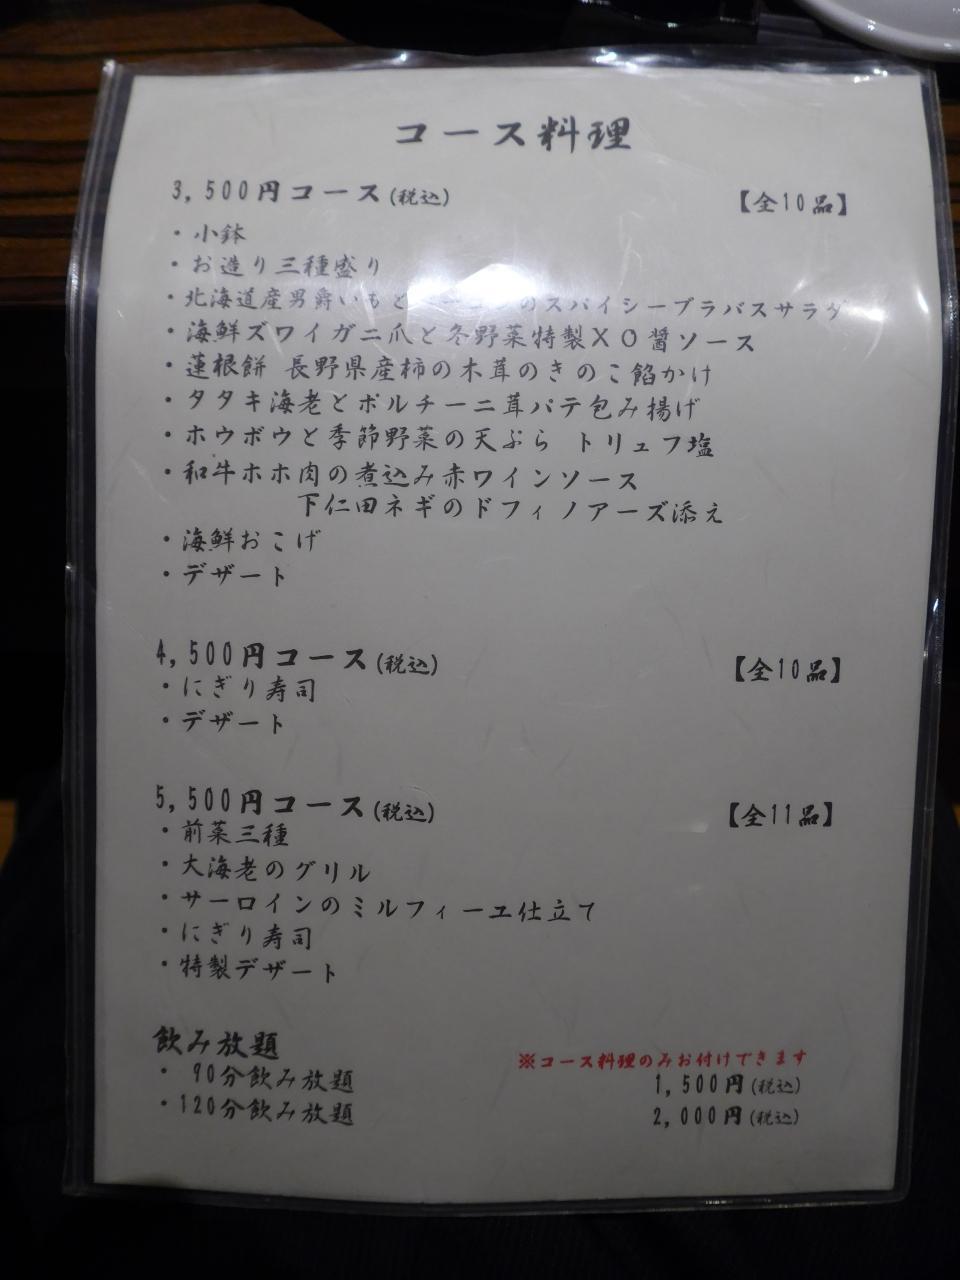 コース料理
3,500円コース(税込) 【全10品】
・小鉢
・お造り三種盛り
・北海道産男爵いもと のスパイシーブラバスサラダ
・海鮮ズワイガニ爪と冬野菜特製XO醤ソース
・蓮根餅 長野県産柿の木茸のきのこ餡かけ
・タタキ海老とポルチーニ茸パテ包み揚げ
・ホウボウと季節野菜の天ぷら トリュフ塩
・和牛ホホ肉の煮込み赤ワインソース
下仁田ネギのドフィノアーズ添え
・海鮮おこげ
・デザート
4,500円コース(税込) 【全10品】
・にぎり寿司
・デザート
5,500円コース(税込) 【全11品】
・前菜三種
・大海老のグリル
・サーロインのミルフィーユ仕立て
・にぎり寿司
・特製デザート
飲み放題 ※コース料理のみお付けできます
・ 90分飲み放題 1,500円(税込)
・120分飲み放題 2,000円(税込)